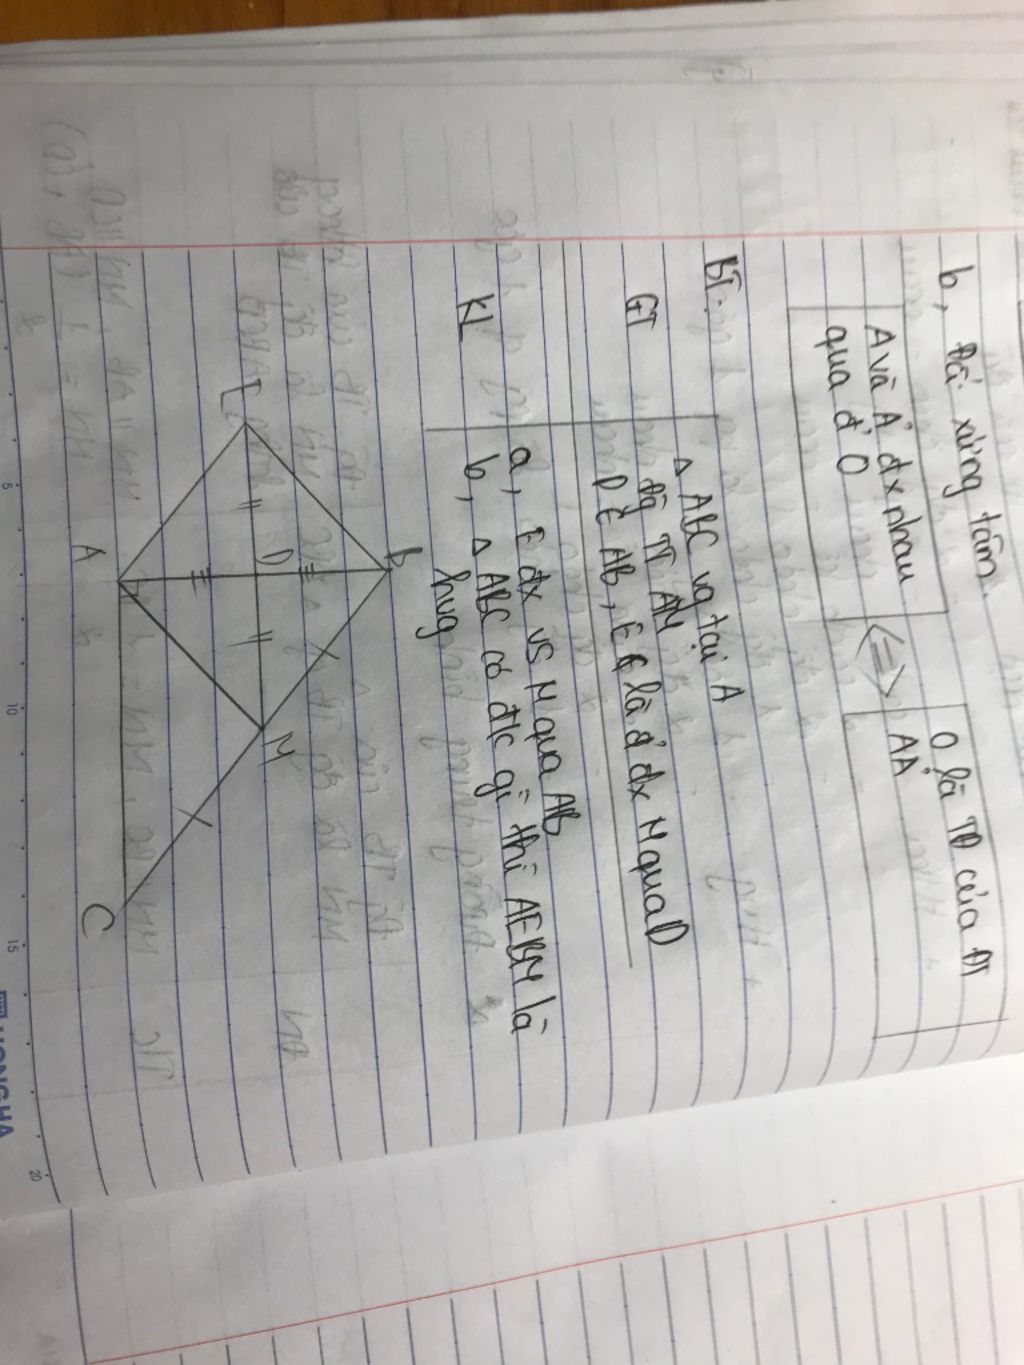 b, Đối xứng tâm.
A và A' đx nhau
qua đ' O
<=>
O là TĐ của ĐT
AA'
BT:
GT
△ ABC vg tại A
đg TT AM
D € AB, E là đ' đx M qua D
KL
a, E đx vs M qua AB
b, △ ABC có đk gì thì AEBM là
hvg
E
B
D
M
A
C
5
10
15
20
HONGHA